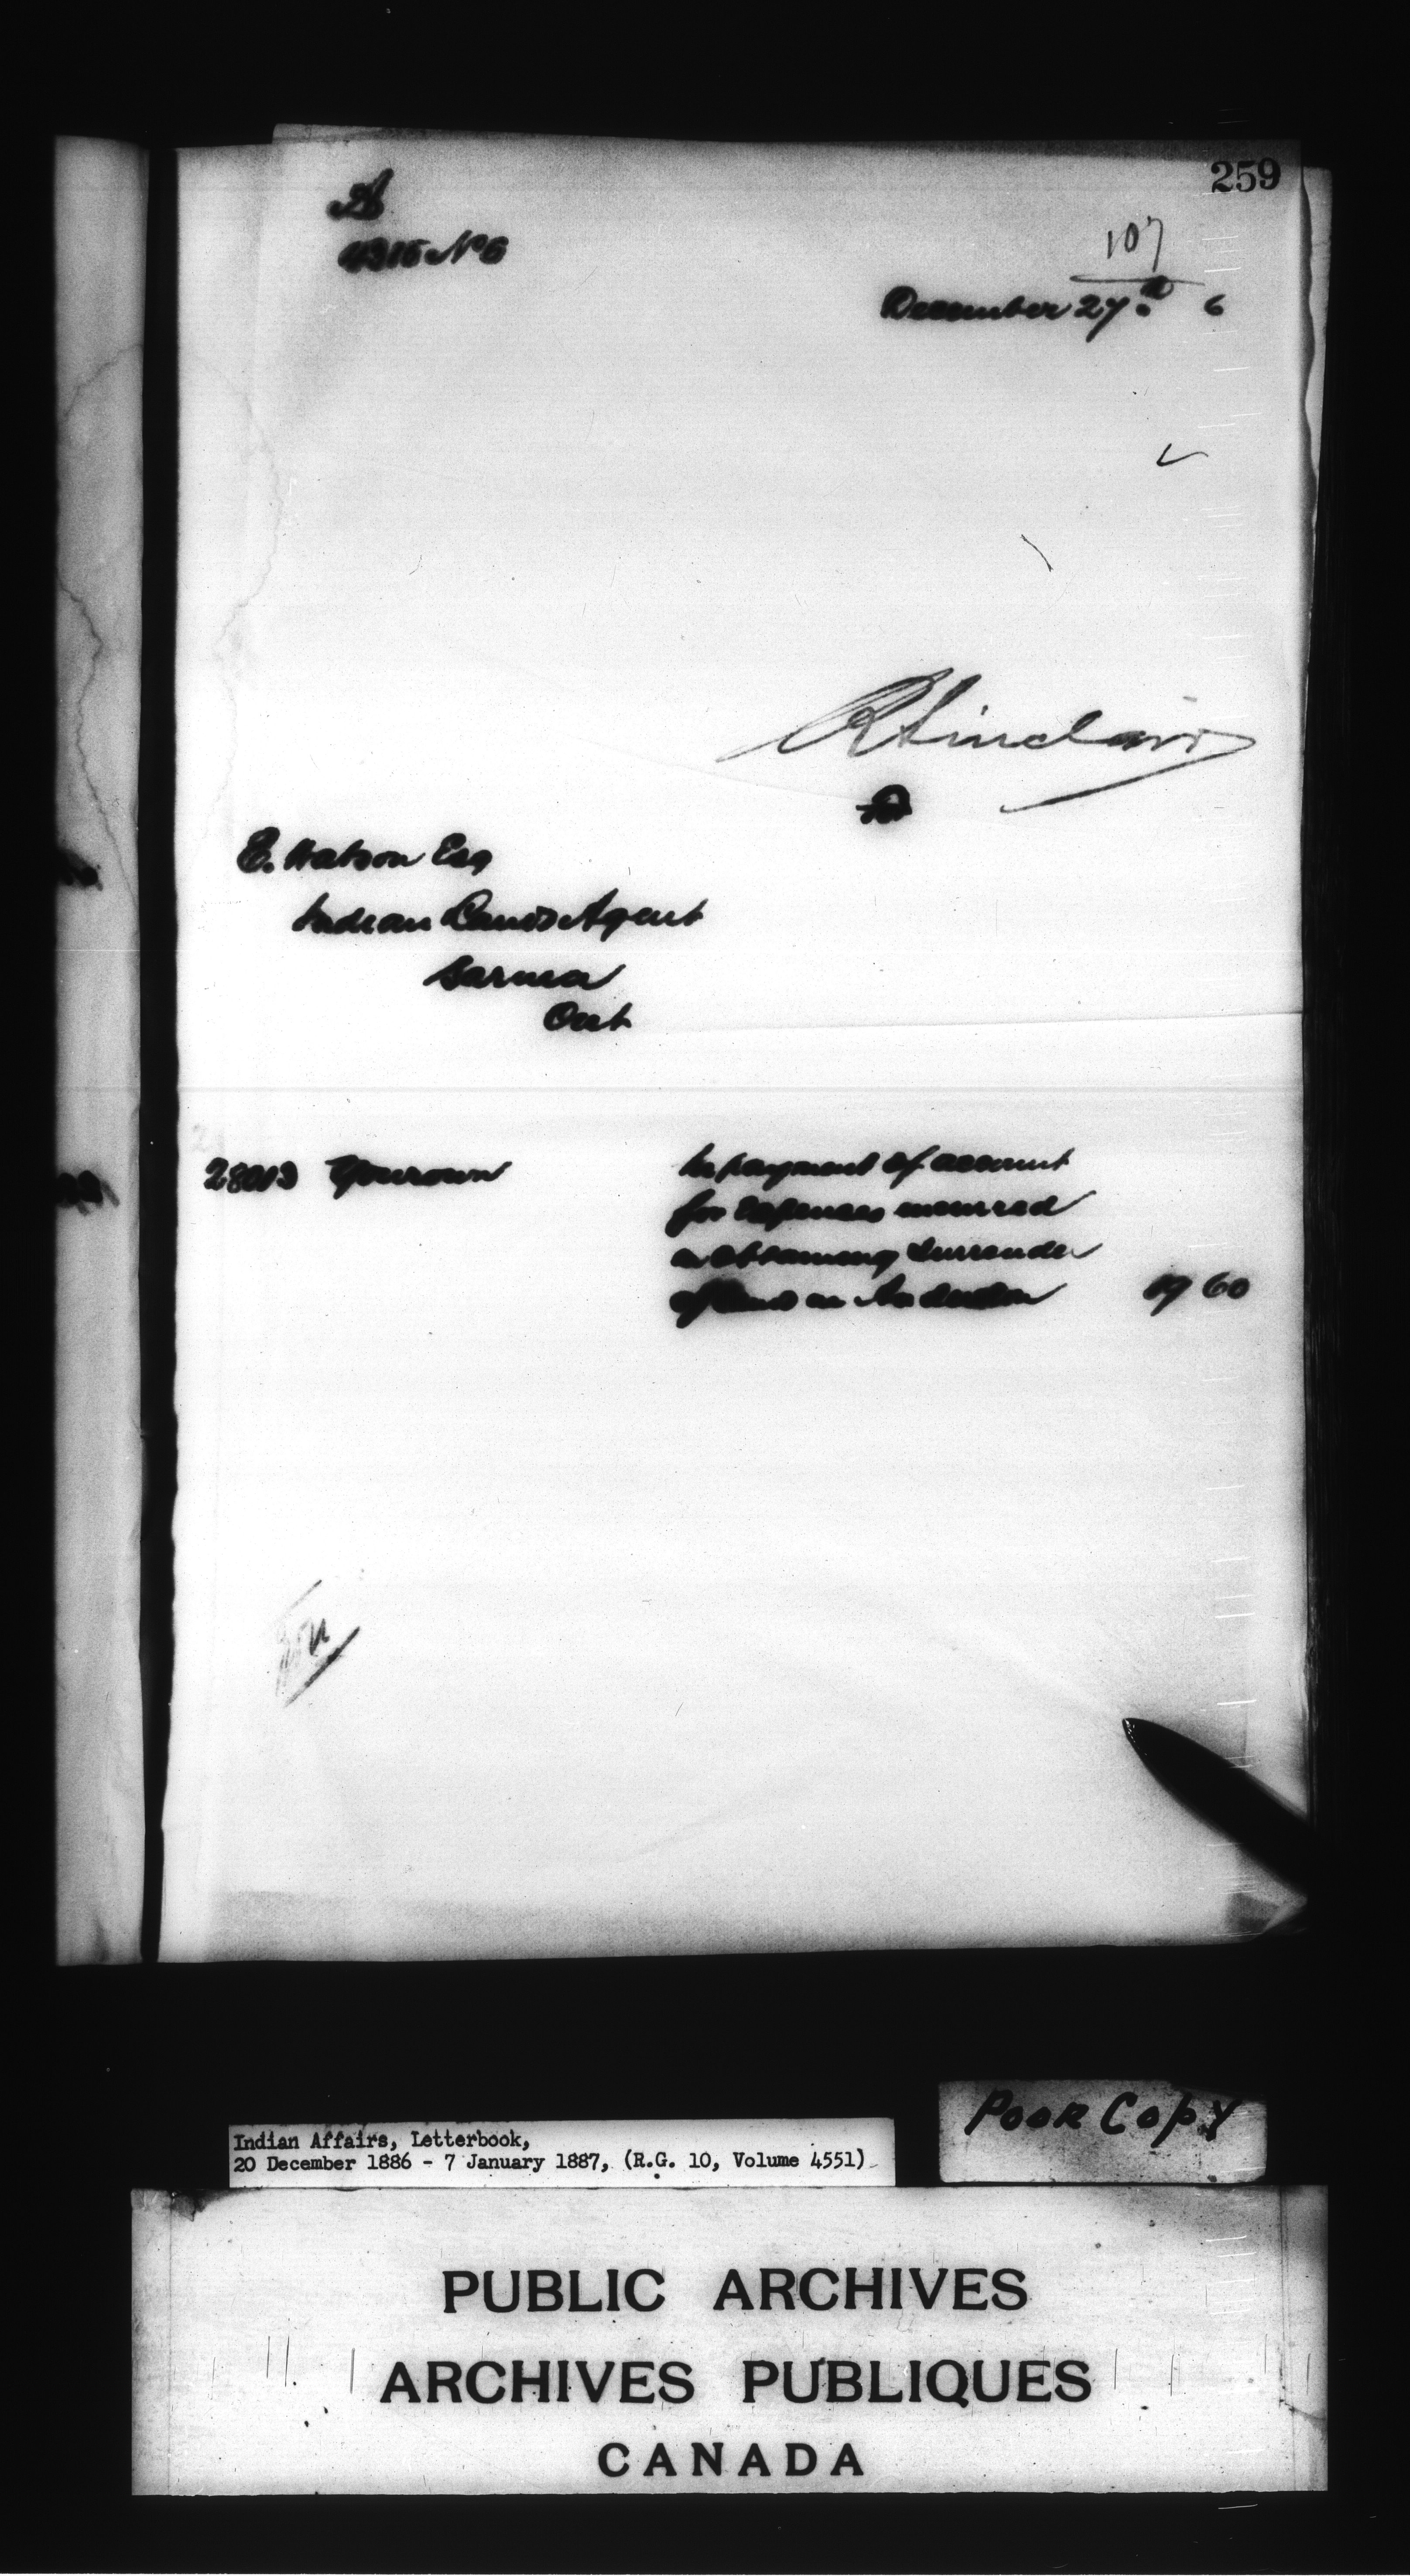 259
107
4315 No 6
December 27th 6
R Sinclair
for
E. Watson Esq
Indian Lands Agent
Sarnia
Ont
28013 Your own
In payment of account
for expenses incurred
in obtaining Surrender
of land in Anderdon 19 60
Poor Copy
Indian Affairs, Letterbook,
20 December 1886 - 7 January 1887, (R.G. 10, Volume 4551)
PUBLIC ARCHIVES
ARCHIVES PUBLIQUES
CANADA